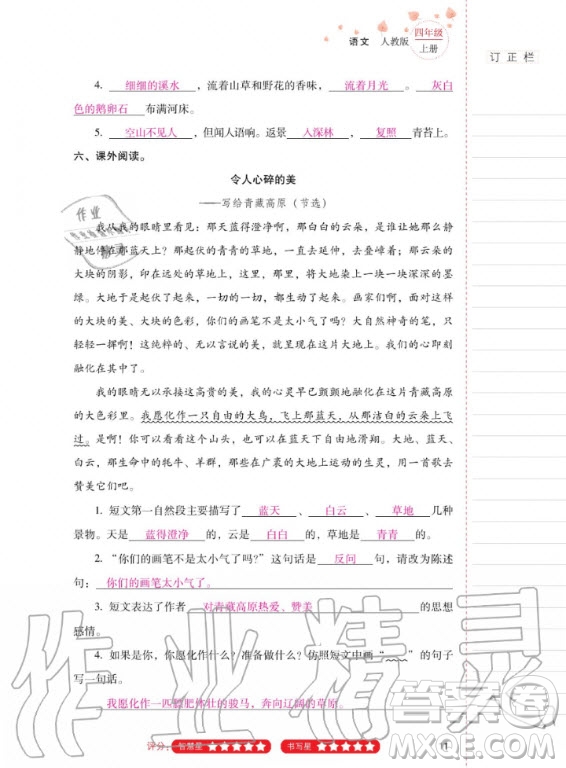 语文 人教版 四年级上册
订正栏
4. 细细的溪水，流着山草和野花的香味，流着月光。灰白
色的鹅卵石布满河床。
5. 空山不见人，但闻人语响。返景入深林，复照青苔上。
六、课外阅读。
令人心碎的美
——写给青藏高原（节选）
我从我的眼睛里看见：那天蓝得澄净啊！那白白的云朵，是谁让她那么静
静地停在那蓝天上？那起伏的青青的草地，一直去延伸，去叠嶂着；那云朵的
大块的阴影，印在远处的草地上，这里，那里，将大地染上一块块深深的墨
绿。大地于是高贵了。一切的一切，都生动了起来。画家们啊，面对这样的
的大块的美、大块的色彩，你们的画笔不是太小气了吗？大自然神奇的笔，只
轻轻一挥啊！这纯粹的、无以言说的美，就呈现在这片大地上。我们的心即刻
融化在其中了。
我的眼睛无以承接这高贵的美，我的心灵早已颤颤地融化在这片青藏高原
的大色彩里。我愿化作一只自由的大鸟，飞上那蓝天，从那洁白的云朵上飞
过。我愿化作看着这个山头，也可以在蓝天下自由地滑翔。大地、蓝天、
白云，那生命中的牦牛、羊群，那些在广袤的大地上劳作的生灵，用一切去
赞美它们吧。
1. 短文第一自然段主要描写了 蓝天 、 白云 、 草地 几种
景物。天是 蓝得澄净 的，云是 白白 的，草地是 青青 的。
2. “你们的画笔不是太小气了吗？”这句话是 反问 句，请改为陈述
句： 你们的画笔太小气了。
3. 短文表达了作者 对青藏高原热爱、赞美 的思想
感情。
4. 如果是你，你愿化作什么？准备做什么？仿照短文中画“ ”的句子
写一句话。
我愿化作一匹膘肥体壮的骏马，奔向辽阔的草原。
作业精灵
答案卷
评分： 智慧星 ★★★★★ 书写星 ★★★★★
11